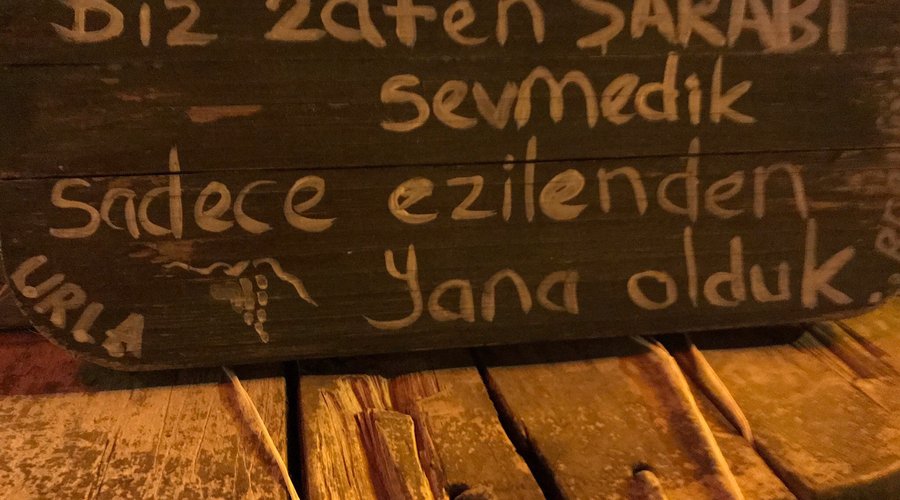 Biz zaten ŞARABI
sevmedik
sadece ezilenden
yana olduk.
URLA